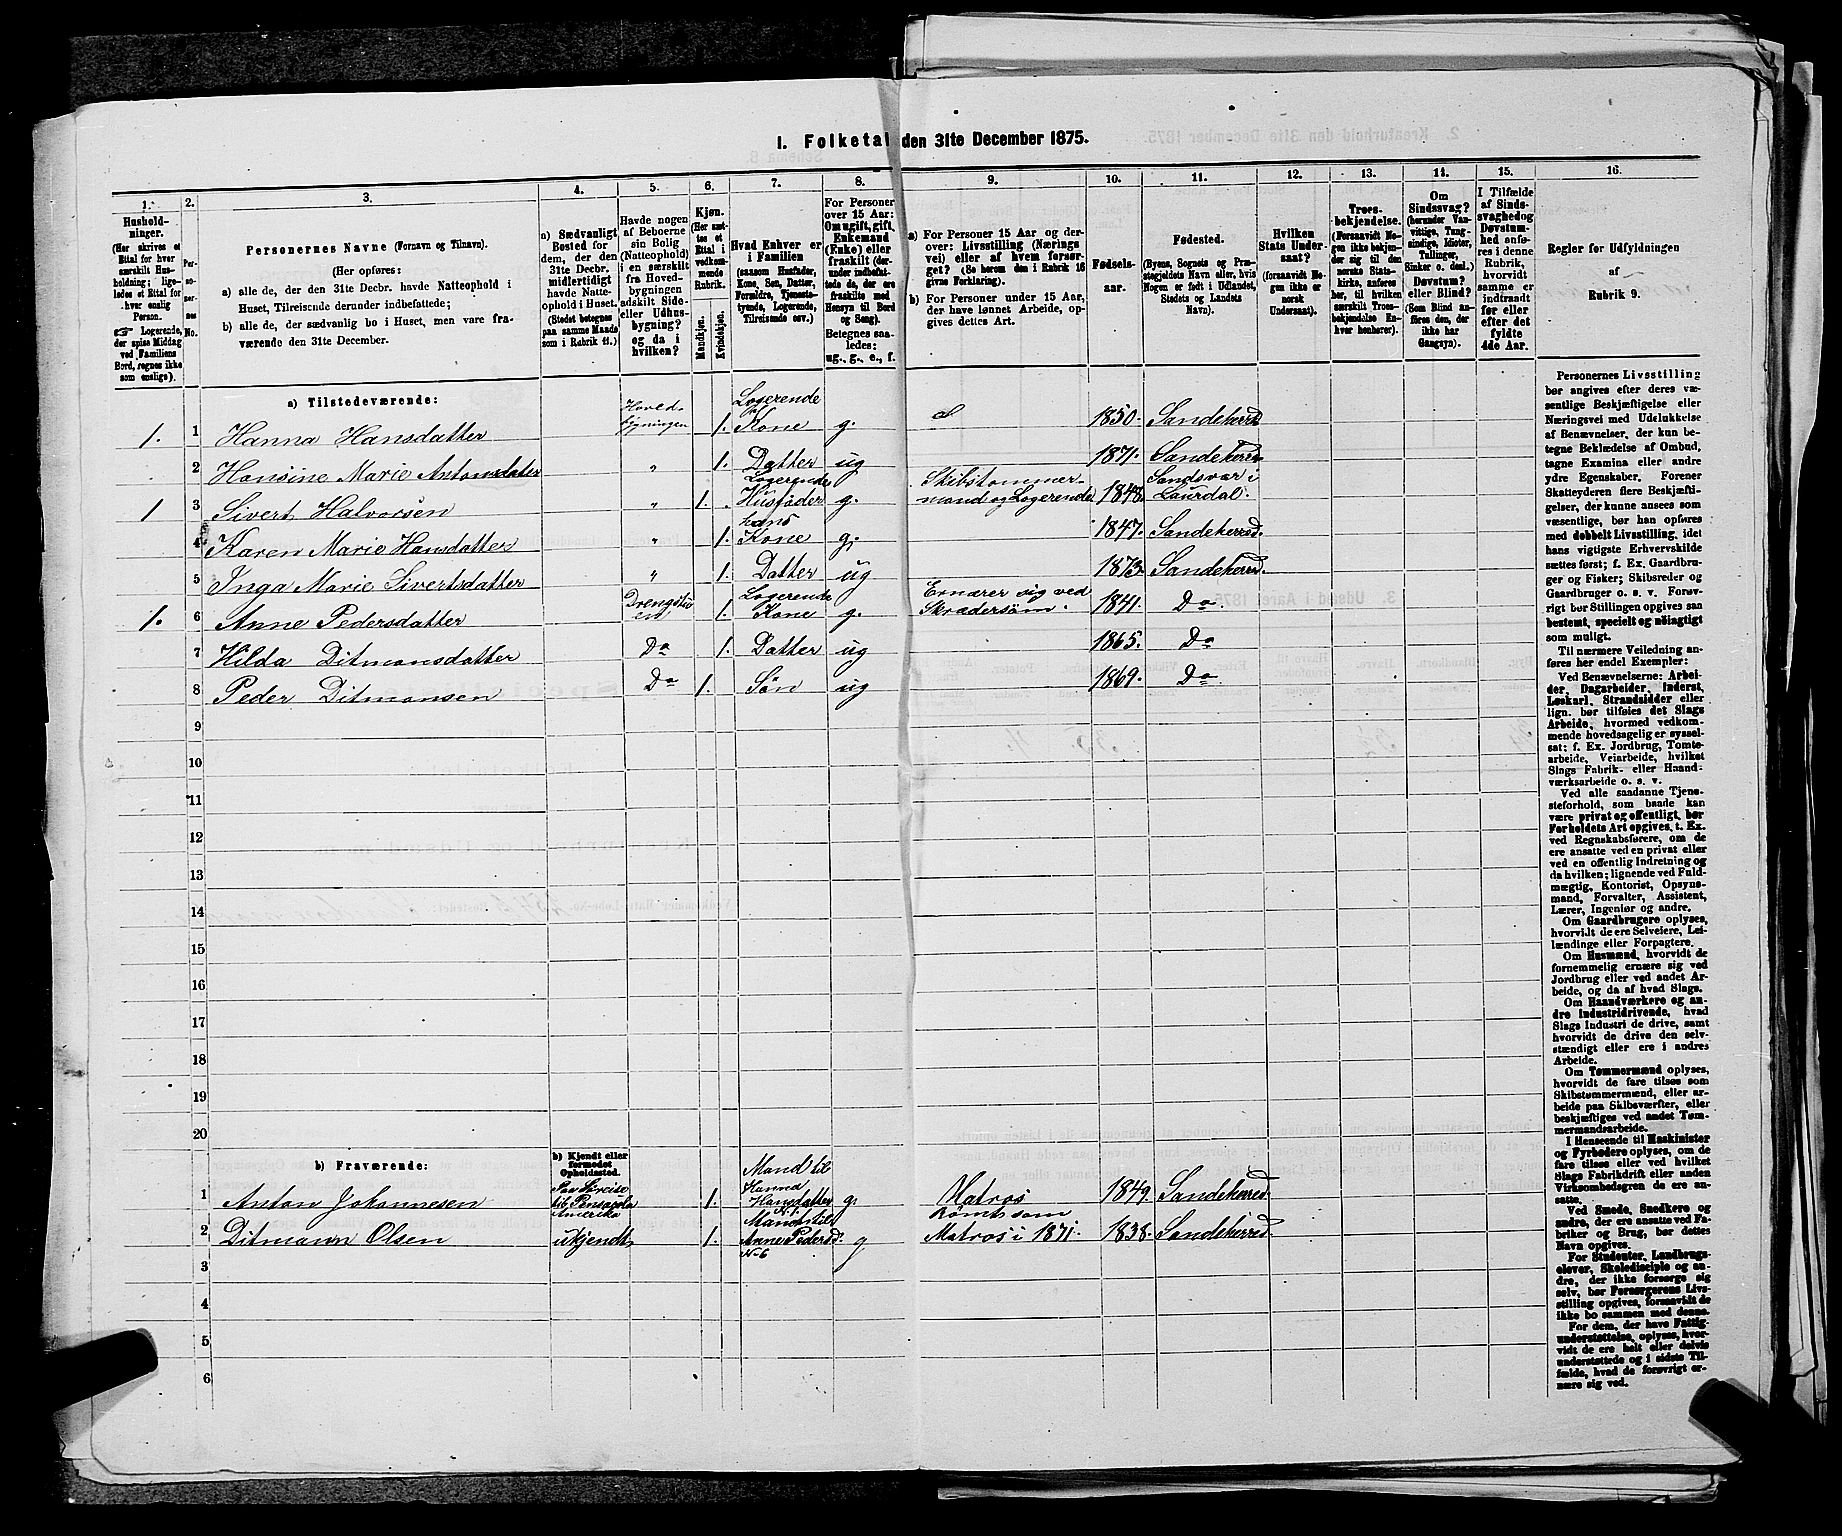 1. Folketal den 31te December 1875.
1. 2. 3. 4. 5. 6. 7. 8. 9. 10. 11. 12. 13. 14. 15. 16.
Hushold-
ninger.
(Her skrives et
Ettal for hver
særskilt Hus-
holdning; lige-
ledes et Ettal for
hver enslig
Person.
☞ Logerende,
der spise Middag
ved Familiens
Bord, regnes ikke
som enslige).
Per-
so-
ner-
nes
No.
Personernes Navne (Fornavn og Tilnavn).
(Her opføres:
a) alle de, der den 31te Decbr. havde Natteophold i
Huset, Tilreisende derunder indbefattede;
b) alle de, der sædvanlig bo i Huset, men vare fra-
værende den 31te December.
a) Sædvanligt
Bosted for
dem, der den
31te Decbr.
midlertidigt
havde Natte-
ophold i Huset.
(Stedet betegnes
paa samme Maade
som i Rubrik 11.)
Havde nogen
af Beboerne
sin Bolig
(Natteophold)
i en særskilt
fra Hoved-
bygningen
adskilt Side-
eller Udhus-
bygning?
og da i
hvilken?
Kjøn.
(Her sæt-
tes et
Ettal i
vedkom-
mende
Rubrik.
Mandkjøn.
Kvindekjøn.
Hvad Enhver er
i Familien
(saasom Husfader,
Kone, Søn, Datter,
Forældre, Tjeneste-
tyende, Logerende,
Tilreisende osv.)
For Personer
over 15 Aar:
Om ugift, gift,
Enkemand
(Enke) eller
fraskilt (der-
under indbefat-
tede de, der ere
fraskilte med
Hensyn til Bord
og Seng).
Betegnes saa-
ledes:
ug., g., e., f.
a) For Personer 15 Aar og der-
over: Livsstilling (Nærings
vei) eller af hvem forsør-
get? (Se herom den i Rubrik 16
givne Forklaring).
b) For Personer under 15 Aar,
der have lønnet Arbeide, op-
gives dettes Art.
Fødsels-
aar.
Fødested.
(Byens, Sognets og Præ-
stegjeldets Navn eller, hvis
Nogen er født i Udlandet,
Stedets og Landets
Navn).
Hvilken
Stats Under-
saat?
(forsaavidt No-
gen ikke er
norsk
Undersaat).
Troes-
bekjendelse.
(Forsaavidt No-
gen ikke bekjen-
der sig til den
norske Stats-
kirke, anføres
her, til hvilken
særskilt Troes-
bekjendelse En-
hver henhører).
Om
Sindssvag?
(herunder Van-
vittige, Tung-
sindige, Idioter,
Tullinger,
Sinker o. desl.)
Døvstum?
eller Blind?
(Som Blind an-
føres den, der
ikke har
Gangsyn).
I Tilfælde
af Sinds-
svaghed og
Døvstum-
hed anfø-
res i denne
Rubrik,
hvorvidt
samme er
indtraadt
før eller
efter det
fyldte
4de Aar.
Regler for Udfyldningen
af
Rubrik 9.
a) Tilstedeværende:
1. 1 Hanna Hansdatter Hovedbygningen 1. Logerende Kone g. 1850. Sandeherred
2 Hansine Marie Antonsdatter " 1. Datter ug 1871. Sandeherred
1 3 Sivert Halvorsen " 1. Logerende Husfader g. Skibstømmermand og Logerende 1848. Sandsvær i Laurdal.
4 Karen Marie Hansdatter " 1. hans Kone g. 1847. Sandeherred.
5 Inga Marie Sivertsdatter " 1. Datter ug 1873. Sandeherred.
1. 6 Anne Pedersdatter 1. Logerende Kone g. Ernærer sig ved Skrædersøm. 1841. Do.
7 Hilda Ditmansdatter Do 1. Datter ug 1865. Do
8 Peder Ditmansen Do 1. Søn ug 1869. Do
9
10
11
12
13
14
15
16
17
18
19
20
b) Fraværende:
b) Kjendt eller
formodet
Opholdssted.
1 Anton Johannesen til Pensacola Amerika 1. Mand til Hanna Hansdatter g. Matros 1849. Sandeherred
2 Ditmann Olsen ukjendt 1. Mand til Anne Pedersd. N. 6 g Rømt som Matros i 1871. 1838. Sandeherred.
3
4
5
6
Personernes Livsstilling
bør angives efter deres væ-
sentlige Beskjæftigelse eller
Næringsvei med Udelukkelse
af Benævnelser, der kun be-
tegne Beklædelse af Ombud,
tagne Examina eller andre
ydre Egenskaber. Forener
Skatteyderen flere Beskjæfti-
gelser, der kunne ansees som
væsentlige, bør han opføres
med dobbelt Livsstilling, idet
hans vigtigste Erhvervskilde
sættes først; f. Ex. Gaardbru-
ger og Fisker; Skibsreder og
Gaardbruger o. s. v. Forøv-
rigt bør Stillingen opgives saa
bestemt, specielt og nøiagtigt
som muligt.
Til nærmere Veiledning an-
føres her endel Exempler:
Ved Benævnelserne: Arbei-
der, Dagarbeider, Inderst,
Løskarl, Strandsidder eller
lign. bør tilføies det Slags
Arbeide, hvormed vedkom-
mende hovedsagelig er syssel-
sat; f. Ex. Jordbrug, Tomte-
arbeide, Veiarbeide, hvilket
Slags Fabrik- eller Haand-
værksarbeide o. s. v.
Ved alle saadanne Tjene-
steforhold, som baade kan
være privat og offentligt, bør
Forholdets Art opgives, t. Ex.
ved Regnskabsførere, om de
ere ansatte ved en privat eller
ved en offentlig Indretning og
da hvilken; lignende ved Fuld-
mægtig, Kontorist, Opsyns-
mand, Forvalter, Assistent,
Lærer, Ingeniør og andre.
Om Gaardbrugere oplyses,
hvorvidt de ere Selveiere, Lei-
lændinge eller Forpagtere.
Om Husmænd, hvorvidt de
fornemmelig ernære sig ved
Jordbrug eller ved andet Ar-
beide, og da af hvad Slags.
Om Haandværkere og an-
dre Industridrivende, hvad
Slags Industri de drive, samt
hvorvidt de drive den selv-
stændigt eller ere i andres
Arbeide.
Om Tømmermænd oplyses,
hvorvidt de fare tilsøs som
Skibstømmermænd, eller ar-
beide paa Skibsværfter, eller
beskjæftiges ved andet Tøm-
mermandsarbeide.
I Henseende til Maskinister
og Fyrbødere oplyses, om de
fare tilsøs eller ved hvilket
Slags Fabrikdrift eller anden
Virksomhedsgren de ere an-
satte.
Ved Smede, Snedkere og
andre, der ere ansatte ved Fa-
briker og Brug, bør dettes
Navn opgives.
For Studenter, Landbrugs-
elever, Skoledisciple og an-
dre, der ikke forsørge sig
selv, bør Forsørgerens Livs-
stilling opgives, forsaavidt de
ikke bo sammen med denne.
For dem, der have Fattig-
understøttelse, oplyses, hvor-
vidt de ere helt eller delvis
understøttede og i sidste Til-
fælde, hvad de forøvrigt er-
nære sig ved.